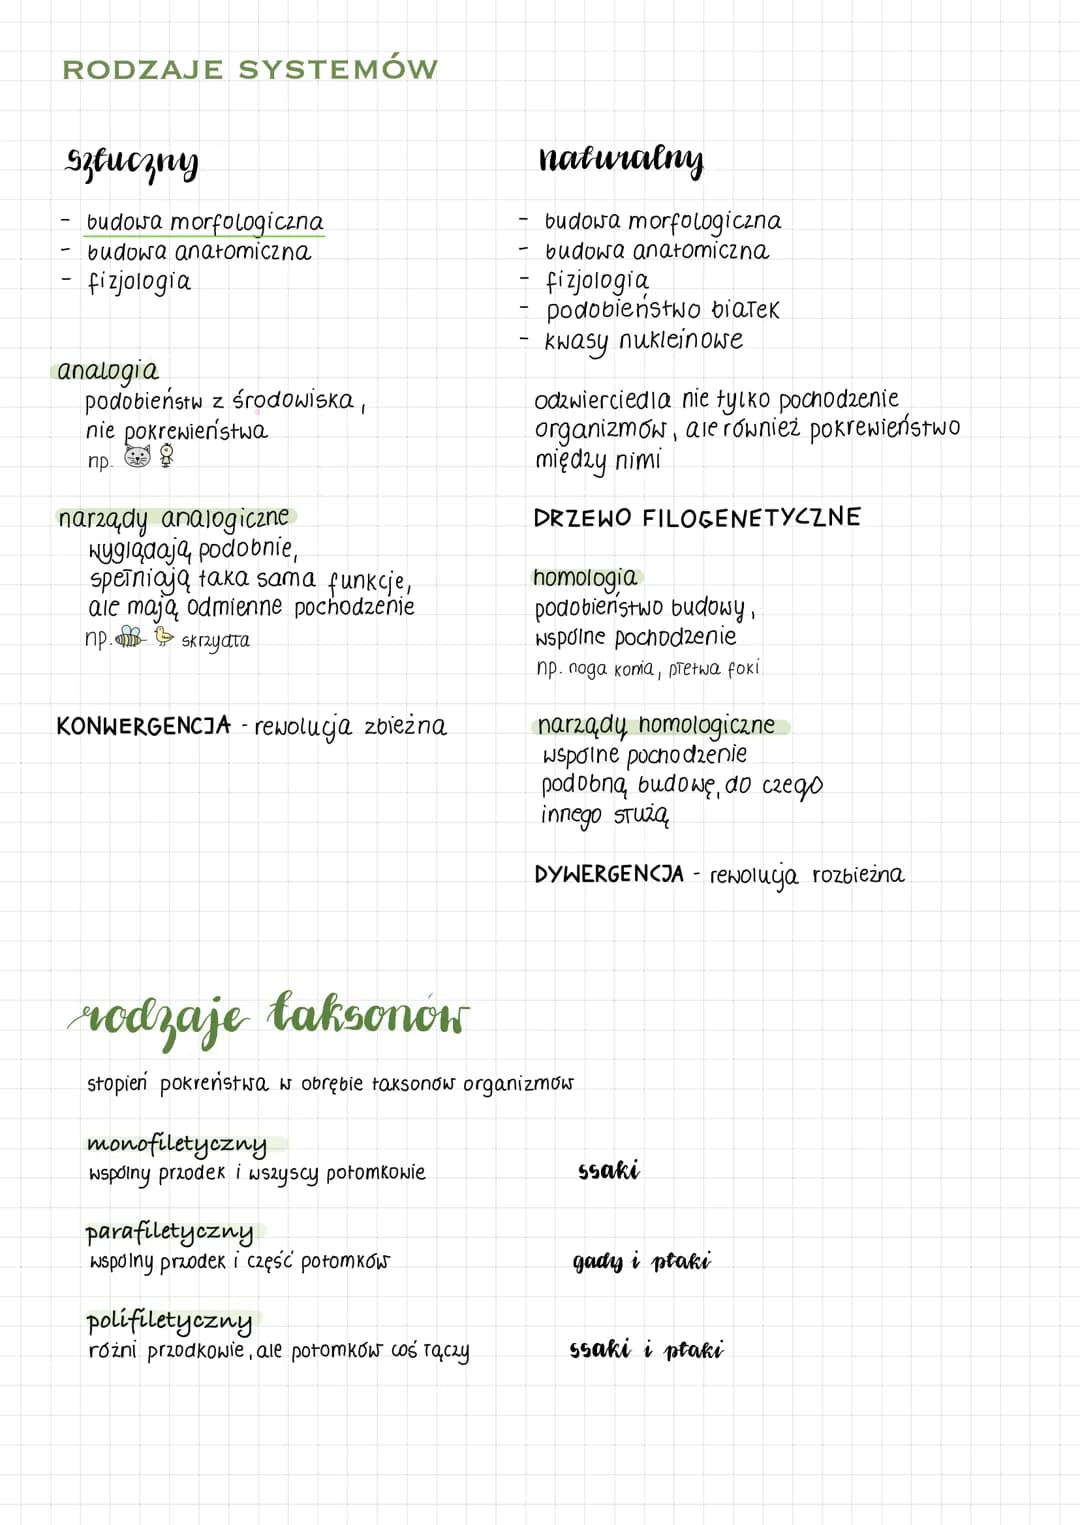 RODZAJE SYSTEMÓW
sztuczny
- budowa morfologiczna
- budowa anatomiczna
- fizjologia
analogia
podobieństw z środowiska,
nie pokrewieństwa
np.
narządy analogiczne
wyglądają podobnie,
spełniają taka sama funkcje,
ale mają odmienne pochodzenie
np. skrzydła
KONWERGENCJA - rewolucja zbieżna
naturalny
- budowa morfologiczna
- budowa anatomiczna
- fizjologia
- podobieństwo białek
- kwasy nukleinowe
odzwierciedla nie tylko pochodzenie
organizmów, ale również pokrewieństwo
między nimi
DRZEWO FILOGENETYCZNE
homologia
podobieństwo budowy,
wspólne pochodzenie
np. noga konia, płetwa foki
narządy homologiczne
wspólne pochodzenie
podobną budowę, do czego
innego służą
DYWERGENCJA - rewolucja rozbieżna
rodzaje taksonów
stopień pokreństwa w obrębie taksonów organizmów
monofiletyczny
wspólny przodek i wszyscy potomkowie
ssaki
parafiletyczny
wspólny przodek i część potomków
gady i ptaki
polifiletyczny
różni przodkowie, ale potomków coś łączy
ssaki i ptaki